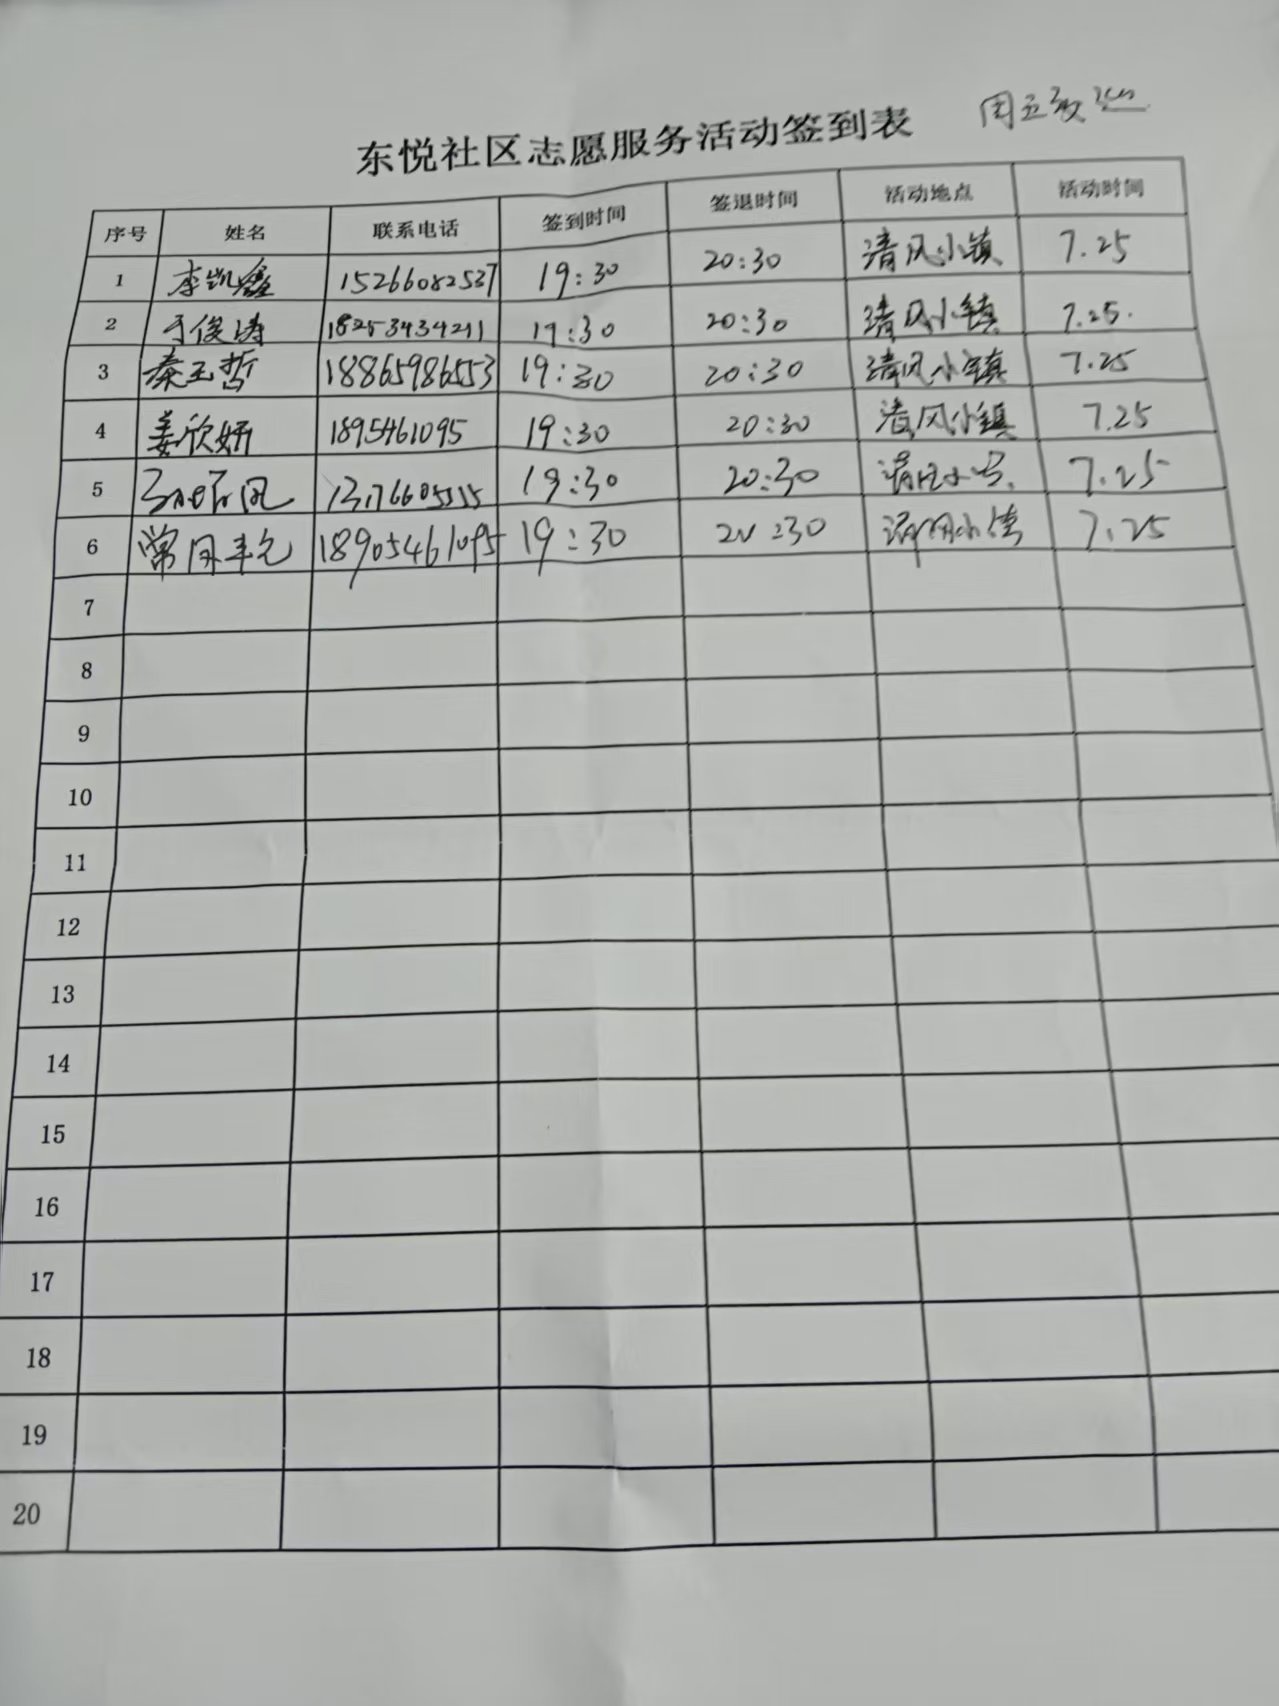 东悦社区志愿服务活动签到表
序号 姓名 联系电话 签到时间 签退时间 活动地点 活动时间
1 李凯鑫 15266082537 19:30 20:30 清风小镇 7.25
2 于俊涛 18253434211 19:30 20:30 清风小镇 7.25.
3 秦玉哲 18865986553 19:30 20:30 清风小镇 7.25
4 姜欣妍 1895461095 19:30 20:30 清风小镇 7.25
5 19:30 20:30 7.25
6 18905461095 19:30 20:30 7.25
7
8
9
10
11
12
13
14
15
16
17
18
19
20